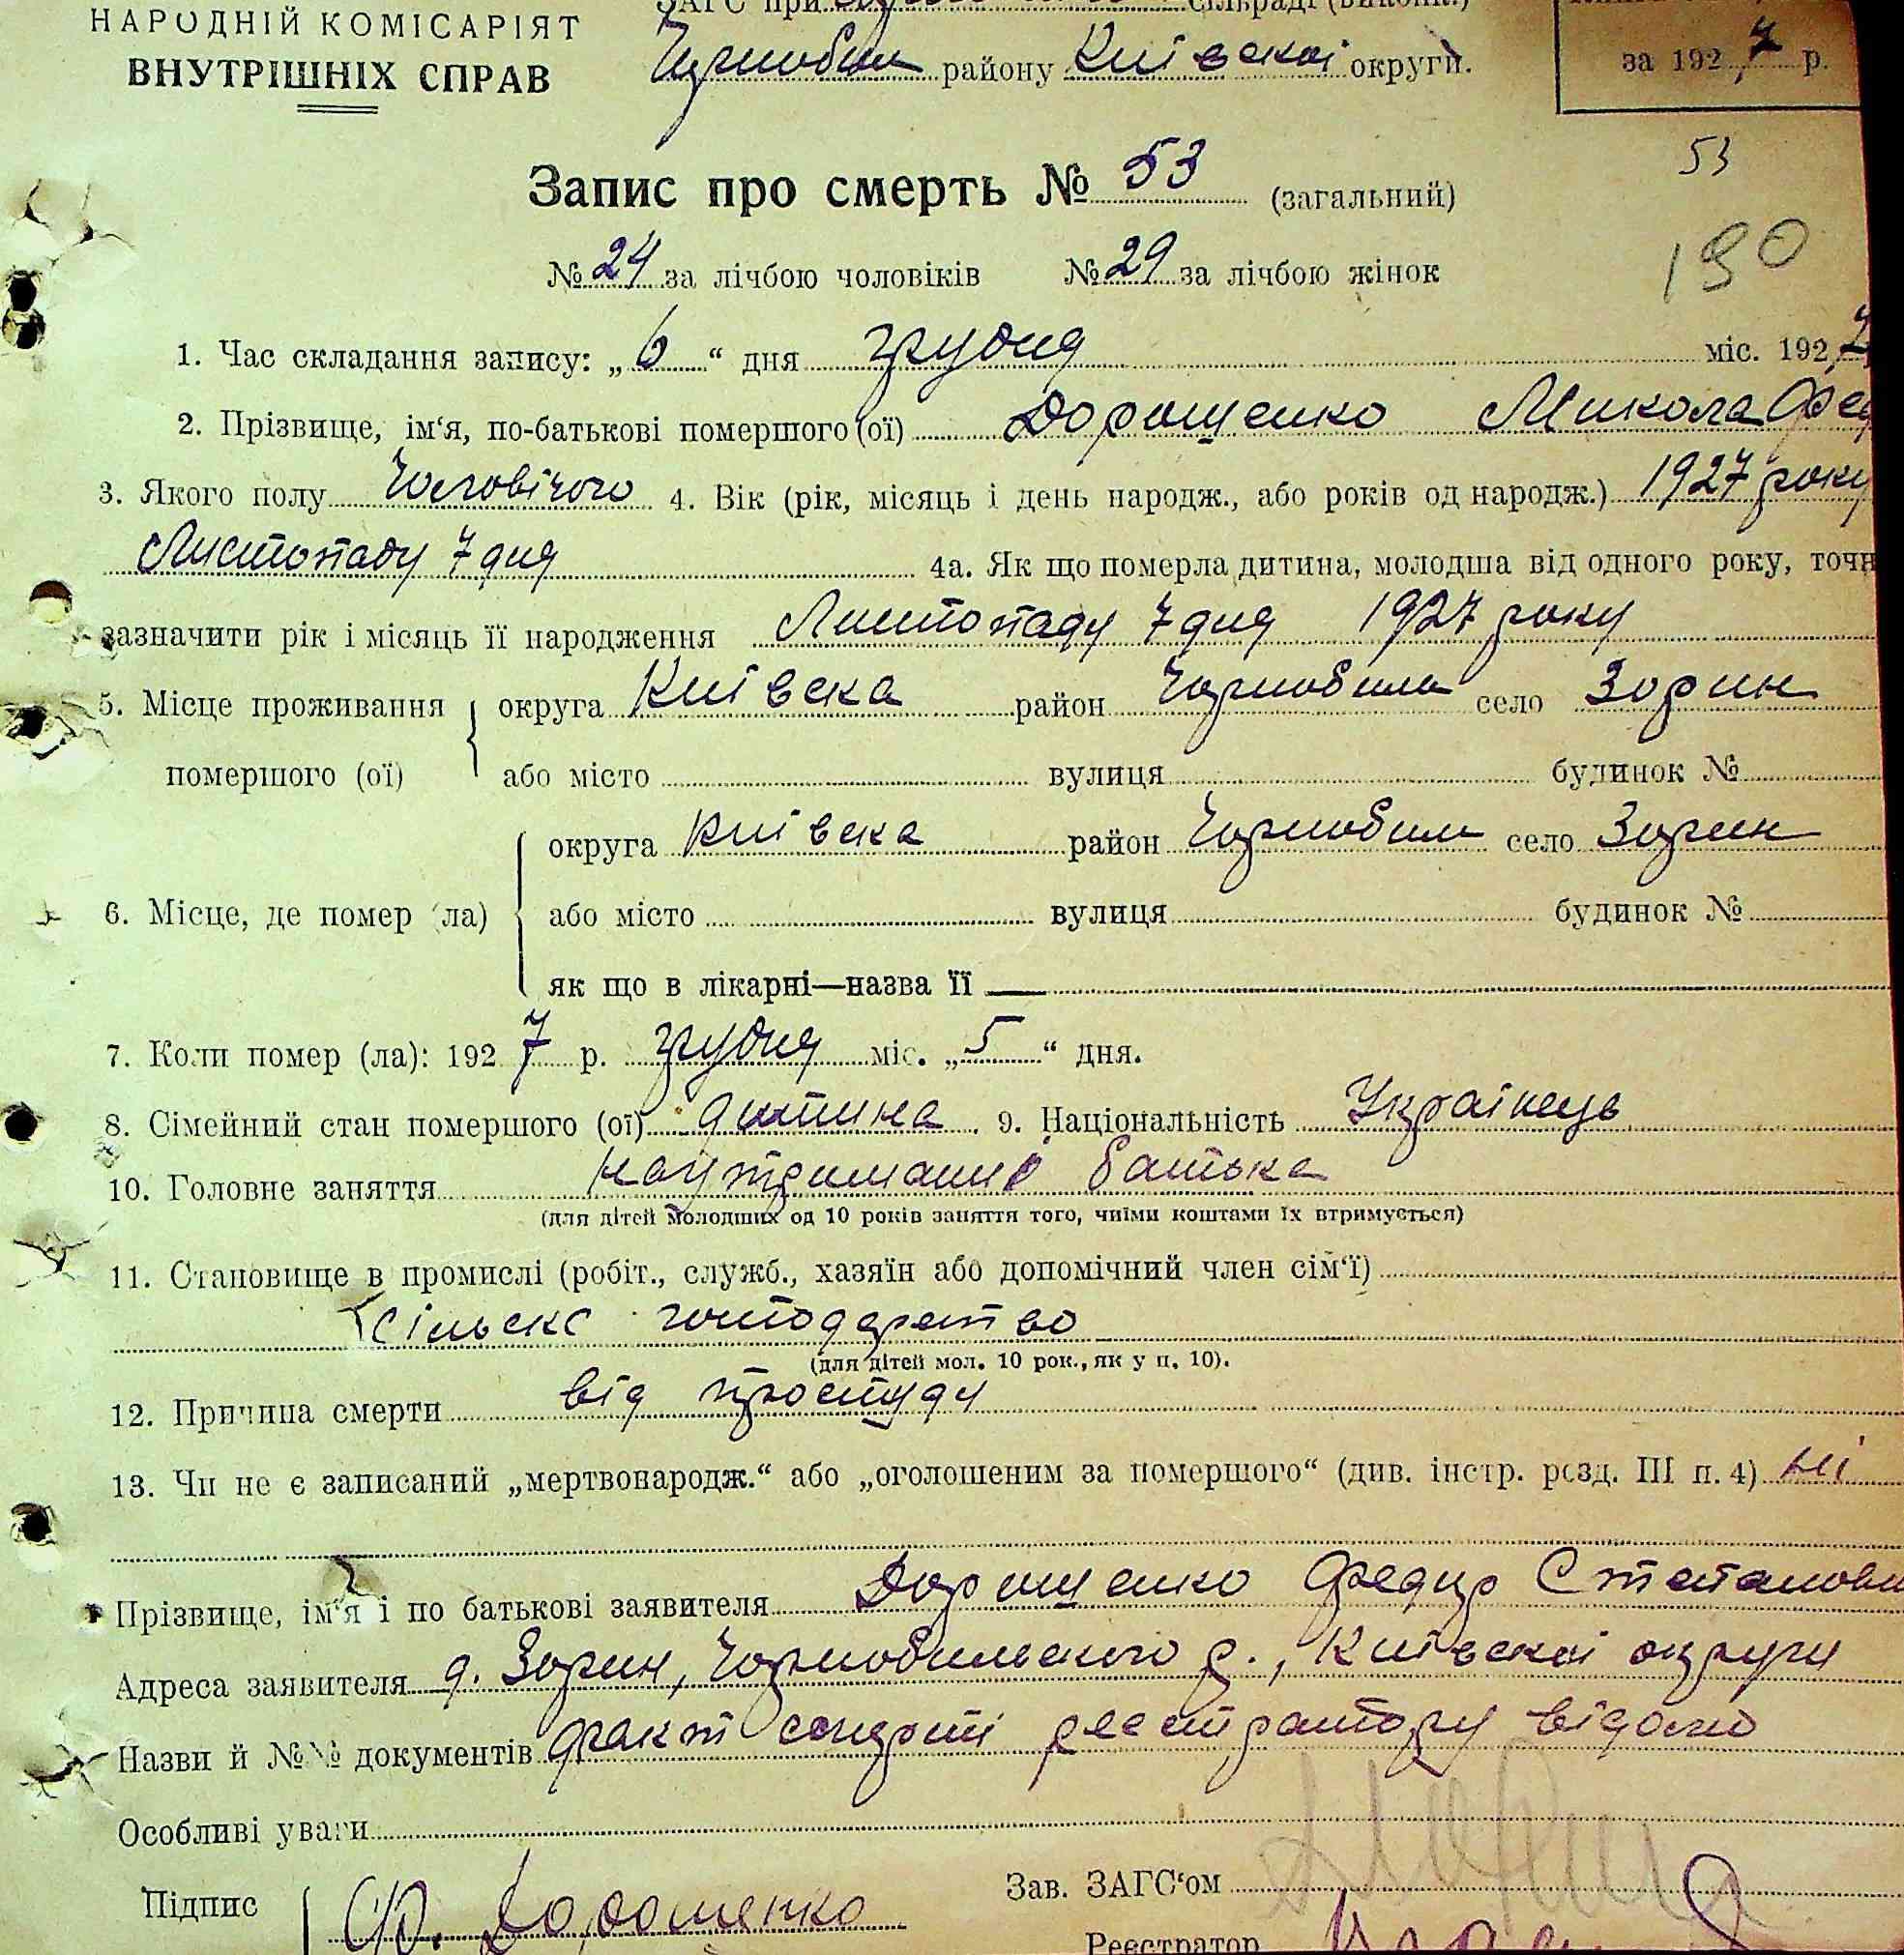 НАРОДНІЙ КОМІСАРІЯТ
ВНУТРІШНІХ СПРАВ
ЗАГС при сільраді (викопк.)
Чорнобил району Київської округи.
за 1927 р.
53
Запис про смерть № 53 (загальний)
190
№ 24 за лічбою чоловіків № 29 за лічбою жінок
1. Час складання запису: „6“ дня грудня міс. 1927
2. Прізвище, ім‘я, по-батькові помершого (ої) Дорошенко Микола Фед
3. Якого полу Чоловічого 4. Вік (рік, місяць і день народж., або років од народж.) 1927 року
Листопаду 7 дня 4а. Як що померла дитина, молодша від одного року, точн
зазначити рік і місяць її народження Листопаду 7 дня 1927 року
5. Місце проживання округа Київска район Чорнобил село Зорин
помершого (ої) або місто вулиця будинок №
округа Київска район Чорнобил село Зорин
6. Місце, де помер (ла) або місто вулиця будинок №
як що в лікарні—назва її
7. Коли помер (ла): 1927 р. грудня міс. „5“ дня.
8. Сімейний стан помершого (ої) дитина 9. Національність Українець
10. Головне заняття батька
(для дітей молодших од 10 років заняття того, чиїми коштами їх втримується)
11. Становище в промислі (робіт., служб., хазяїн або допомічний член сім‘ї)
Сільске господарство
(для дітей мол. 10 рок., як у п. 10).
12. Причина смерти від простуду
13. Чи не є записаний „мертвонародж.“ або „оголошеним за помершого“ (див. інстр. розд. III п. 4) ні
Прізвище, ім‘я і по батькові заявителя Дорошенко Федир Степанови
Адреса заявителя д. Зорин, Чорнобильского р., Київскої округи
Назви й №№ документів факт смерті реєстратору відомо
Особливі уваги
Підпис Ф. Дорошенко
Зав. ЗАГС‘ом
Реєстратор